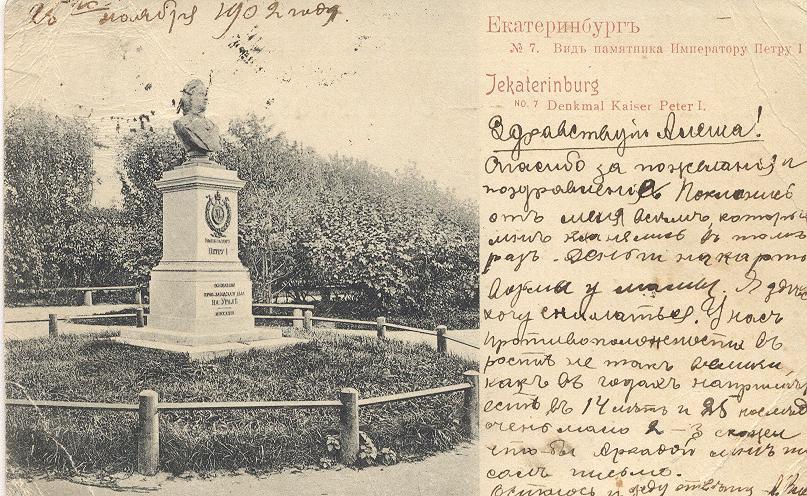 ноября 1902 году.
Екатеринбургъ
№ 7. Видъ памятника Императору Петру I
Jekaterinburg
NO. 7 Denkmal Kaiser Peter I.
Здравствуй Алеша!
Спасибо за пожелания и
поздравление Поклонись
отъ меня всемъ которые
мнѣ кланялись въ томъ
разъ. деньги на карто
у мамы. Я
хочу сниматься. У насъ
противоположности въ
ростѣ не такъ велики,
какъ въ годахъ
есть въ 14 летъ и 25
очень мало 2-3 скажи
что бы Аркадий мнѣ
самъ письмо.
Остаюсь и жду ответа
ПЕТРУ I
НА УРАЛѢ